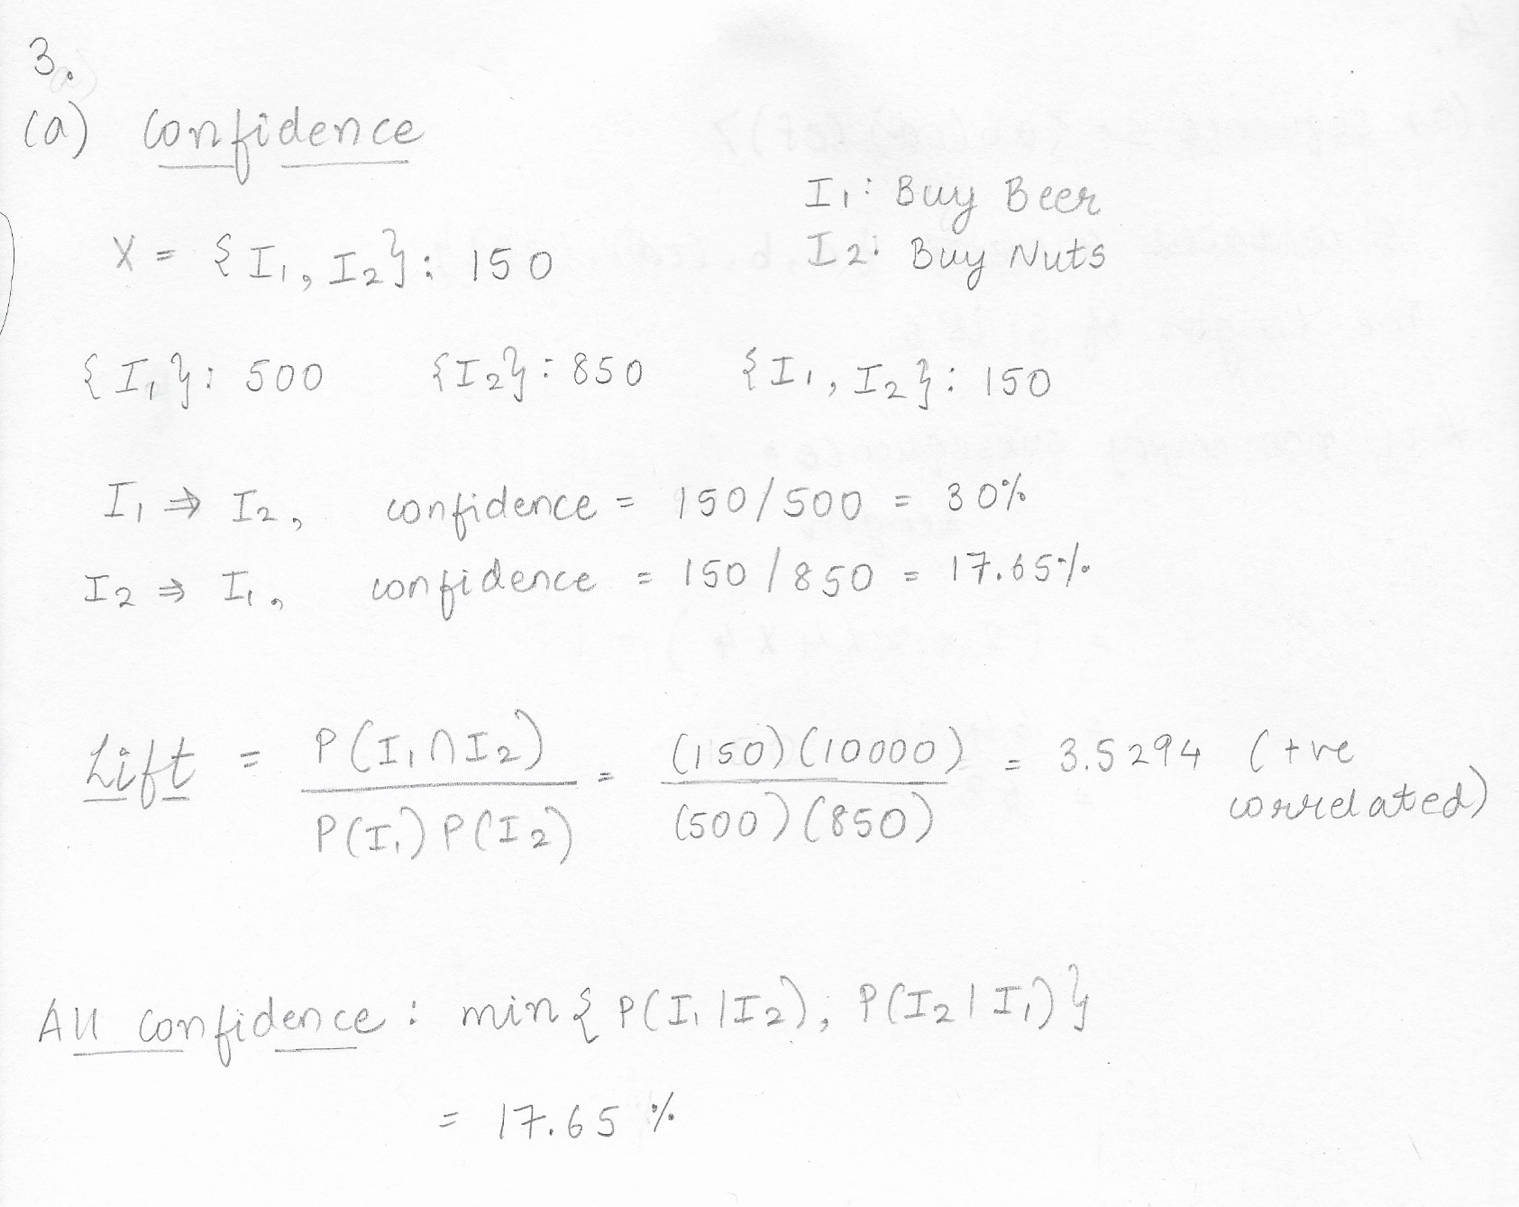 3.
(a) Confidence
I₁: Buy Beer
X = {I₁, I₂}: 150
I2: Buy Nuts
{I₁}: 500 {I₂}: 850 {I₁, I₂}: 150
I₁ ⇒ I₂, confidence = 150/500 = 30%
I₂ ⇒ I₁, confidence = 150/850 = 17.65%
Lift = P(I₁∩I₂) / P(I₁) P(I₂) = (150)(10000) / (500)(850) = 3.5294 (+ve correlated)
All confidence: min{P(I₁|I₂), P(I₂|I₁)}
= 17.65 %